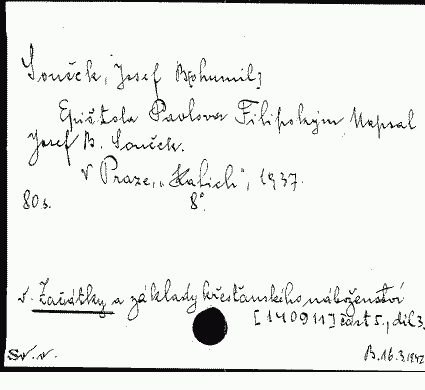 Souček, Josef B[ohumil]
Epištola Pavlova Filipským Napsal
Josef B. Souček.
V Praze, „Kalich", 1937.
80 s. 8°.
v. Začátky a základy křesťanského náboženství
[140911] část 5., díl 3.
Sv. v. B. 16.3.1942